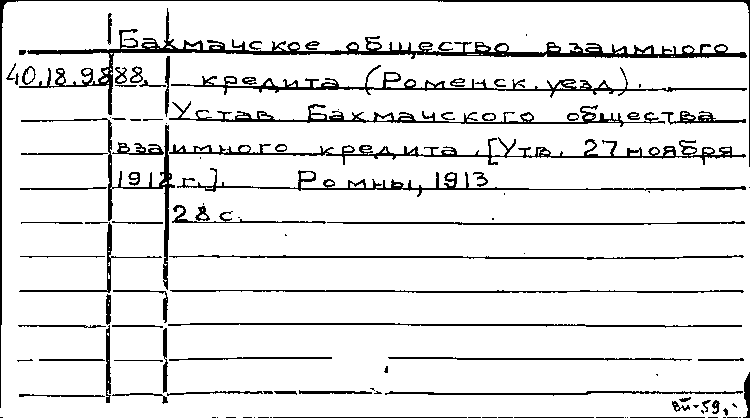 Бахмачское общество взаимного
40.18.9.888. кредита (Роменск. уезд).
Устав Бахмачского общества
взаимного кредита. [Утв. 27 ноября
1912 г.]. Ромны, 1913.
28 с.
вй-59.